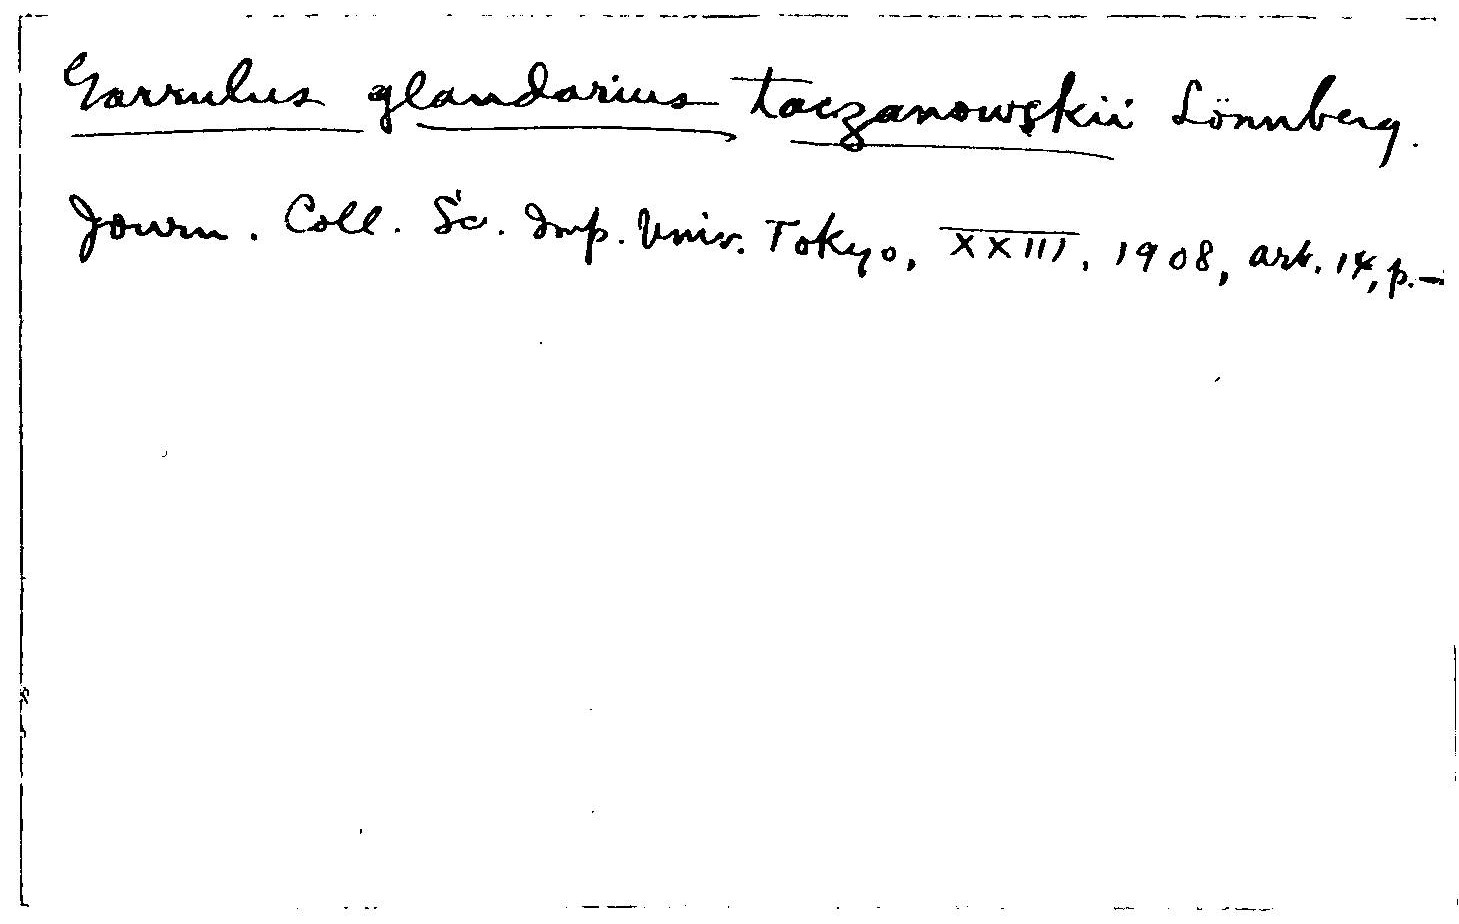 Garrulus glandarius taczanowskii Lönnberg.
Journ. Coll. Sc. Imp. Univ. Tokyo, XXIII, 1908, art. 14, p.—